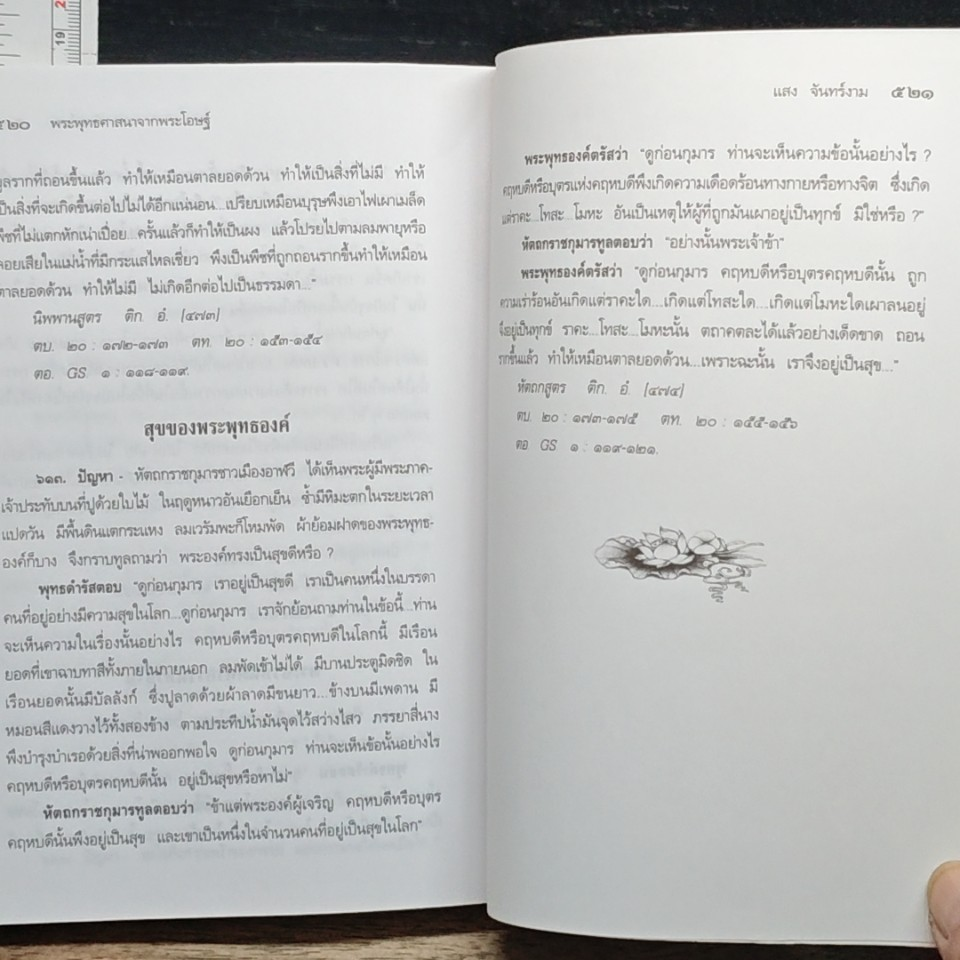 ๕๒๐ พระพุทธศาสนาจากพระโอษฐ์
มูลรากที่ถอนขึ้นแล้ว ทำให้เหมือนตาลยอดด้วน ทำให้เป็นสิ่งที่ไม่มี ทำให้
เป็นสิ่งที่จะเกิดขึ้นต่อไปไม่ได้อีกแน่นอน...เปรียบเหมือนบุรุษพึงเอาไฟเผาเมล็ด
พืชที่ไม่แตกหักเน่าเปื่อย...ครั้นแล้วก็ทำให้เป็นผง แล้วโปรยไปตามลมพายุหรือ
ลอยเสียในแม่น้ำที่มีกระแสไหลเชี่ยว พึงเป็นพืชที่ถูกถอนรากขึ้นทำให้เหมือน
ตาลยอดด้วน ทำให้ไม่มี ไม่เกิดอีกต่อไปเป็นธรรมดา..."
นิพพานสูตร ติก. อํ. [๔๗๓]
ตบ. ๒๐ : ๑๗๒-๑๗๓ ตท. ๒๐ : ๑๕๓-๑๕๔
ตอ. GS. ๑ : ๑๑๘-๑๑๙.
สุขของพระพุทธองค์
๖๑๓. ปัญหา - หัตถกราชกุมารชาวเมืองอาฬวี ได้เห็นพระผู้มีพระภาค-
เจ้าประทับบนที่ปูด้วยใบไม้ ในฤดูหนาวอันเยือกเย็น ซ้ำมีหิมะตกในระยะเวลา
แปดวัน มีพื้นดินแตกระแหง ลมเวรัมพะก็โหมพัด ผ้าย้อมฝาดของพระพุทธ-
องค์ก็บาง จึงกราบทูลถามว่า พระองค์ทรงเป็นสุขดีหรือ ?
พุทธดำรัสตอบ "ดูก่อนกุมาร เราอยู่เป็นสุขดี เราเป็นคนหนึ่งในบรรดา
คนที่อยู่อย่างมีความสุขในโลก...ดูก่อนกุมาร เราจักย้อนถามท่านในข้อนี้...ท่าน
จะเห็นความในเรื่องนั้นอย่างไร คฤหบดีหรือบุตรคฤหบดีในโลกนี้ มีเรือน
ยอดที่เขาฉาบทาสีทั้งภายในภายนอก ลมพัดเข้าไม่ได้ มีบานประตูมิดชิด ใน
เรือนยอดนั้นมีบัลลังก์ ซึ่งปูลาดด้วยผ้าลาดมีขนยาว...ข้างบนมีเพดาน มี
หมอนสีแดงวางไว้ทั้งสองข้าง ตามประทีปน้ำมันจุดไว้สว่างไสว ภรรยาสี่นาง
พึงบำรุงบำเรอด้วยสิ่งที่น่าพออกพอใจ ดูก่อนกุมาร ท่านจะเห็นข้อนั้นอย่างไร
คฤหบดีหรือบุตรคฤหบดีนั้น อยู่เป็นสุขหรือหาไม่"
หัตถกราชกุมารทูลตอบว่า "ข้าแต่พระองค์ผู้เจริญ คฤหบดีหรือบุตร
คฤหบดีนั้นพึงอยู่เป็นสุข และเขาเป็นหนึ่งในจำนวนคนที่อยู่เป็นสุขในโลก"
แสง จันทร์งาม ๕๒๑
พระพุทธองค์ตรัสว่า "ดูก่อนกุมาร ท่านจะเห็นความข้อนั้นอย่างไร ?
คฤหบดีหรือบุตรแห่งคฤหบดีพึงเกิดความเดือดร้อนทางกายหรือทางจิต ซึ่งเกิด
แต่ราคะ...โทสะ...โมหะ อันเป็นเหตุให้ผู้ที่ถูกมันเผาอยู่เป็นทุกข์ มิใช่หรือ ?"
หัตถกราชกุมารทูลตอบว่า "อย่างนั้นพระเจ้าข้า"
พระพุทธองค์ตรัสว่า "ดูก่อนกุมาร คฤหบดีหรือบุตรคฤหบดีนั้น ถูก
ความเร่าร้อนอันเกิดแต่ราคะใด...เกิดแต่โทสะใด...เกิดแต่โมหะใดเผาลนอยู่
จึงอยู่เป็นทุกข์ ราคะ...โทสะ...โมหะนั้น ตถาคตละได้แล้วอย่างเด็ดขาด ถอน
รากขึ้นแล้ว ทำให้เหมือนตาลยอดด้วน...เพราะฉะนั้น เราจึงอยู่เป็นสุข..."
หัตถกสูตร ติก. อํ. [๔๗๔]
ตบ. ๒๐ : ๑๗๓-๑๗๕ ตท. ๒๐ : ๑๕๕-๑๕๖
ตอ. GS ๑ : ๑๑๙-๑๒๑.
19
2